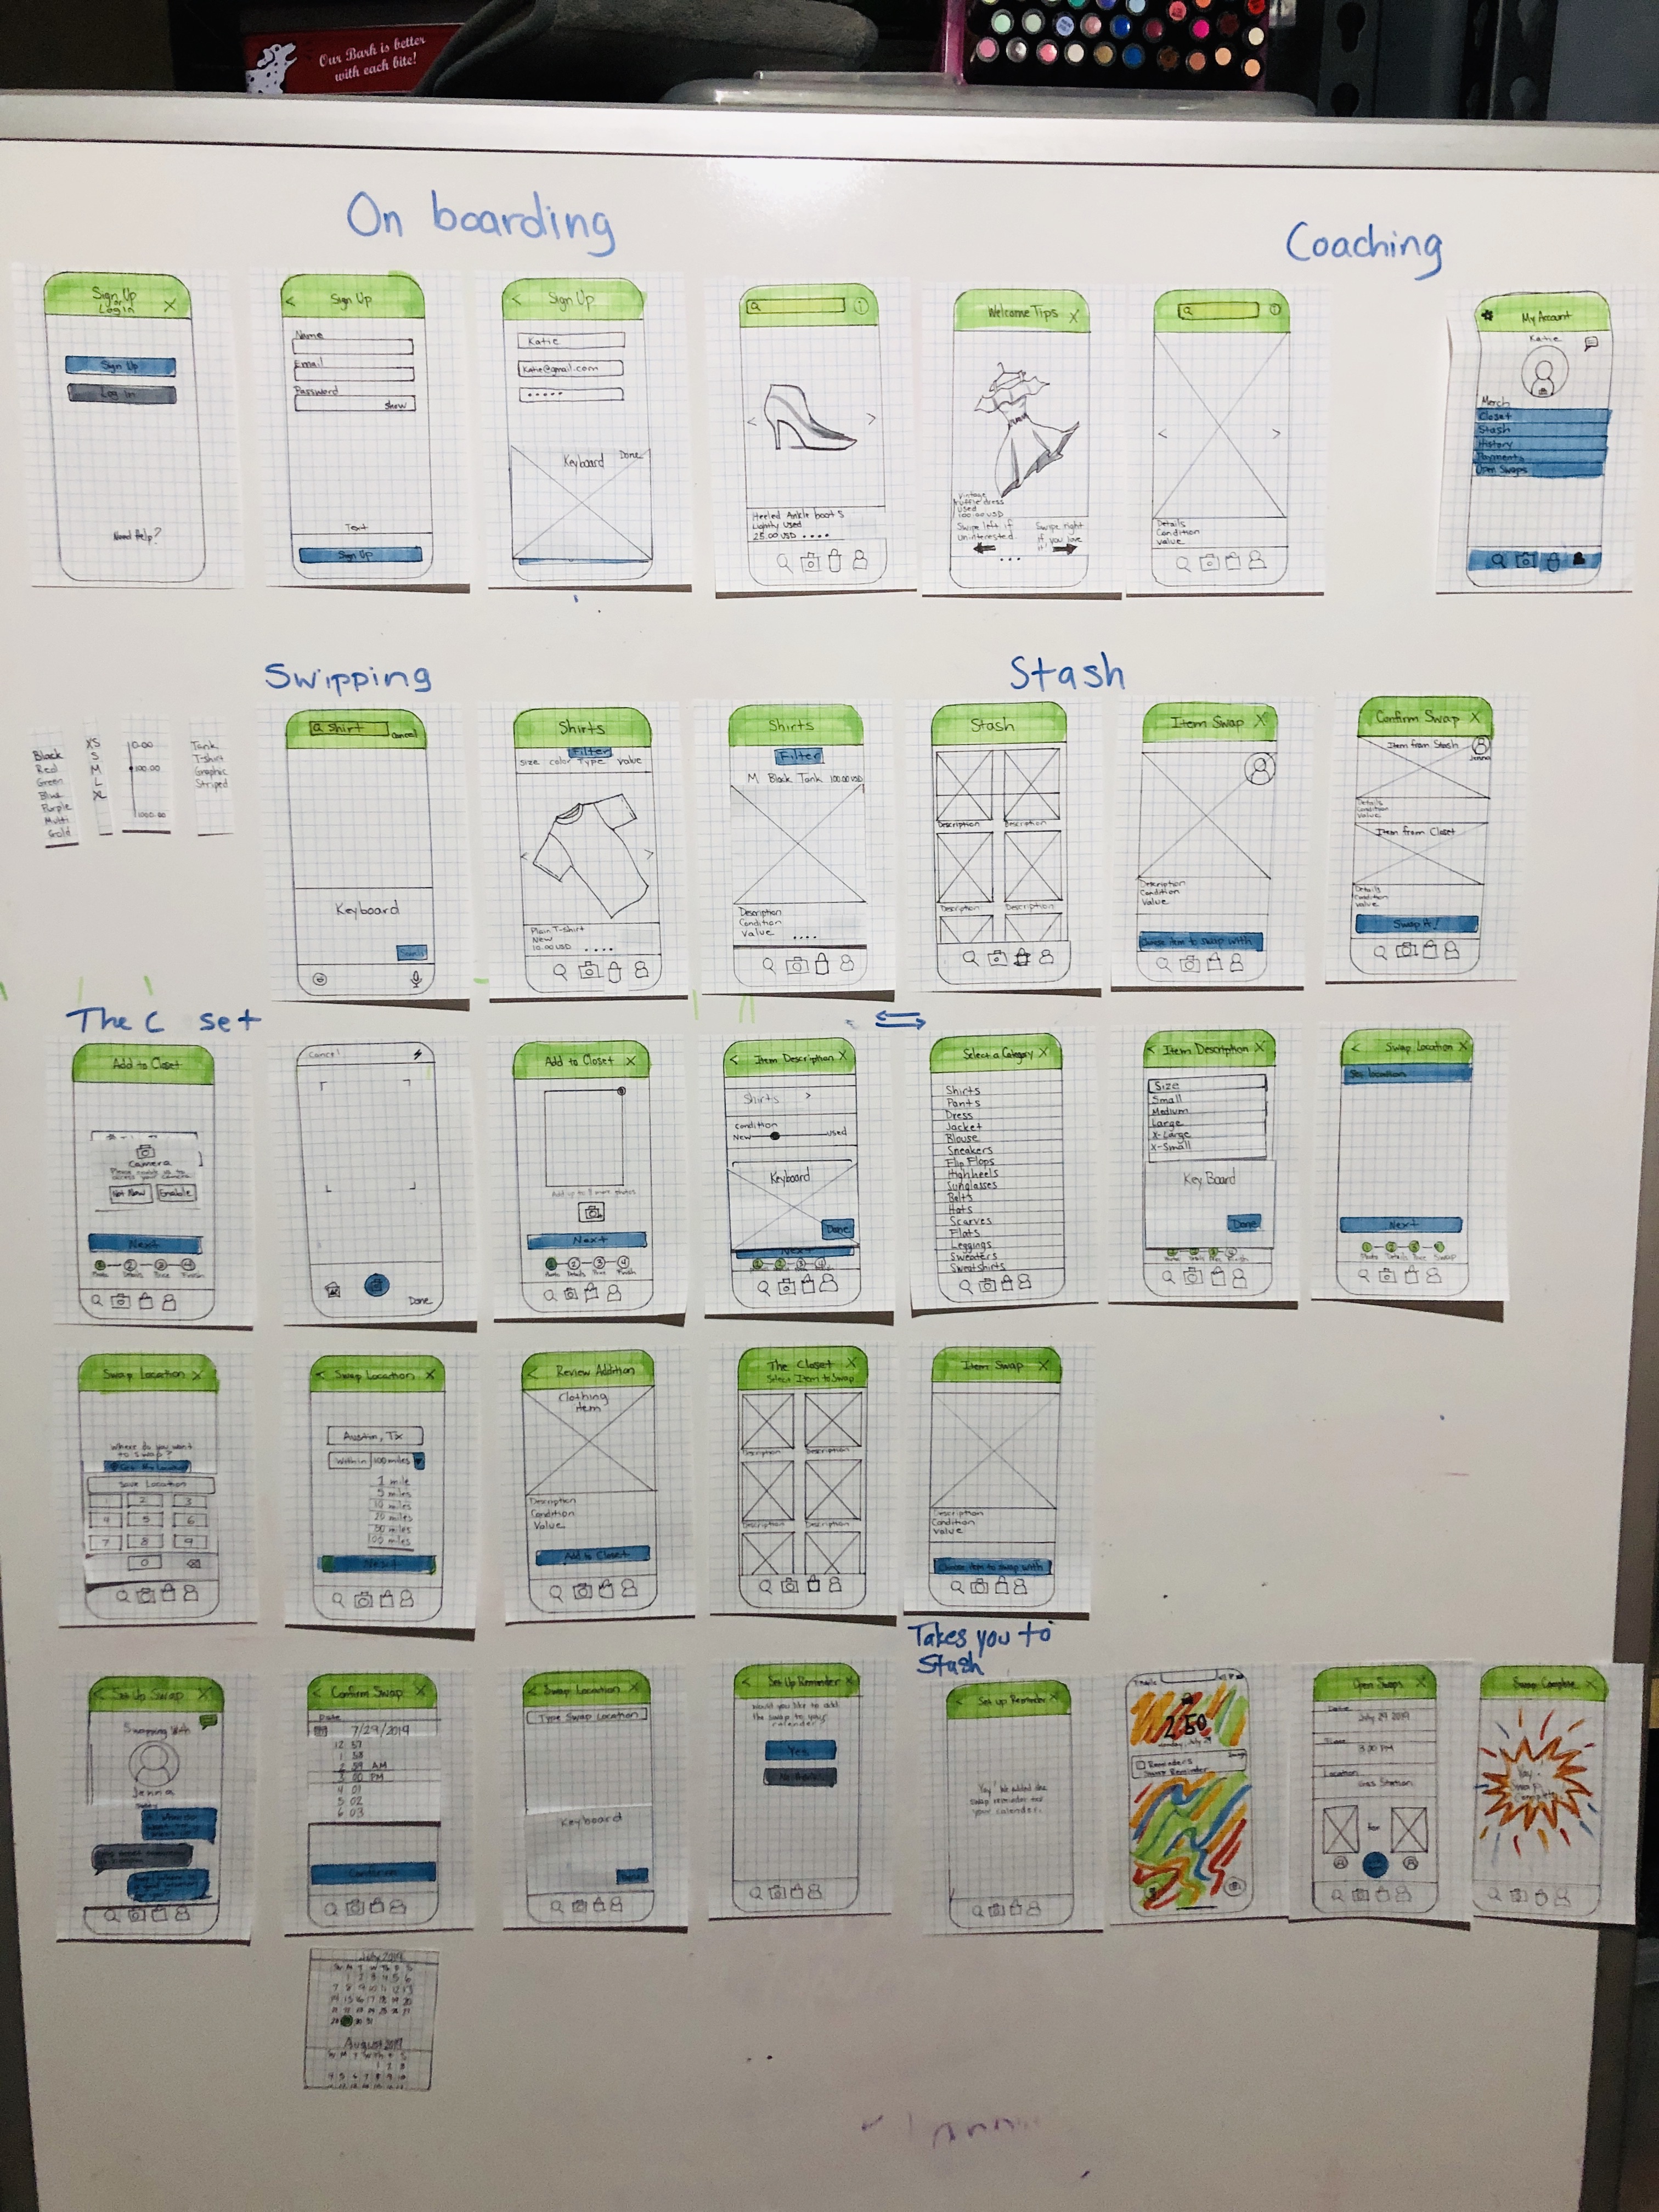 Our Bark is better
with each bite!
On boarding
Coaching
Sign Up
or
Log in
X
Sign Up
Log In
Need Help?
< Sign Up
Name
Email
Password
Show
Text
Sign Up
< Sign Up
Katie
Katie@gmail.com
Keyboard
Done
< >
Heeled Ankle boots
Lightly used
25.00 USD
Welcome Tips X
Vintage
ruffle dress
used
100.00 USD
Swipe left if
uninterested
Swipe right
if you love
it!
< >
Details
Condition
Value
My Account
Katie
Merch
Closet
Stash
History
Payments
Open Swaps
Swipping
Stash
Black
Red
Green
Blue
Purple
Multi
Gold
XS
S
M
L
XL
0.00
100.00
1000.00
Tank
T-shirt
Graphic
Striped
shirt
Cancel
Keyboard
Shirts
Filter
size color Type value
< >
Plain T-shirt
New
10.00 USD
Shirts
Filter
M Black Tank 100.00 USD
Description
Condition
Value
Stash
Description
Description
Description
Description
Item Swap X
Description
Condition
Value
Choose item to swap with
Confirm Swap X
Item from Stash
Jenna
Details
Condition
Value
Item from Closet
Details
Condition
Value
Swap It!
The C set
Add to Closet
Camera
Not Now
Enable
Next
1 2 3 4
Photo Details Price Finish
Cancel
Done
Add to Closet X
Add up to 3 more photos
Next
1 2 3 4
Photo Details Price Finish
< Item Description X
Shirts >
Condition
New
used
Keyboard
Done
Next
Select a Category X
Shirts
Pants
Dress
Jacket
Blouse
Sneakers
Flip Flops
High heels
Sunglasses
Belts
Hats
Scarves
Flats
Leggings
Sweaters
Sweatshirts
< Item Description X
Size
Small
Medium
Large
X-Large
X-Small
Key Board
Done
< Swap Location X
Set location
Next
Swap Location X
Where do you want
to swap?
Save Location
1 2 3
4 5 6
7 8 9
0
< Swap Location X
Austin, Tx
Within 100 miles
1 mile
5 miles
10 miles
20 miles
50 miles
100 miles
Next
< Review Addition
Clothing
item
Description
Condition
Value
Add to Closet
The Closet X
Select Item to Swap
Description
Description
Description
Description
Item Swap X
Description
Condition
Value
Choose item to swap with
Takes you to
Stash
< Set Up Swap X
Swapping With
Jenna
< Confirm Swap X
Date
7/29/2019
12 57
1 58
2 59 AM
3 00 PM
4 01
5 02
6 03
Confirm
< Swap Location X
Type Swap Location
Keyboard
Set Up Reminder X
Would you like to add
the swap to your
calender?
Yes
< Set up Reminder X
Yay! We added the
swap reminder to
your calender.
2:50
Monday, July 29
Reminders
Swap Reminder
Open Swaps X
Date
July 29 2019
Time
3:00 PM
Location
Gas Station
for
Swap Complete X
Yay
Swap
Complete
July 2019
August 2019